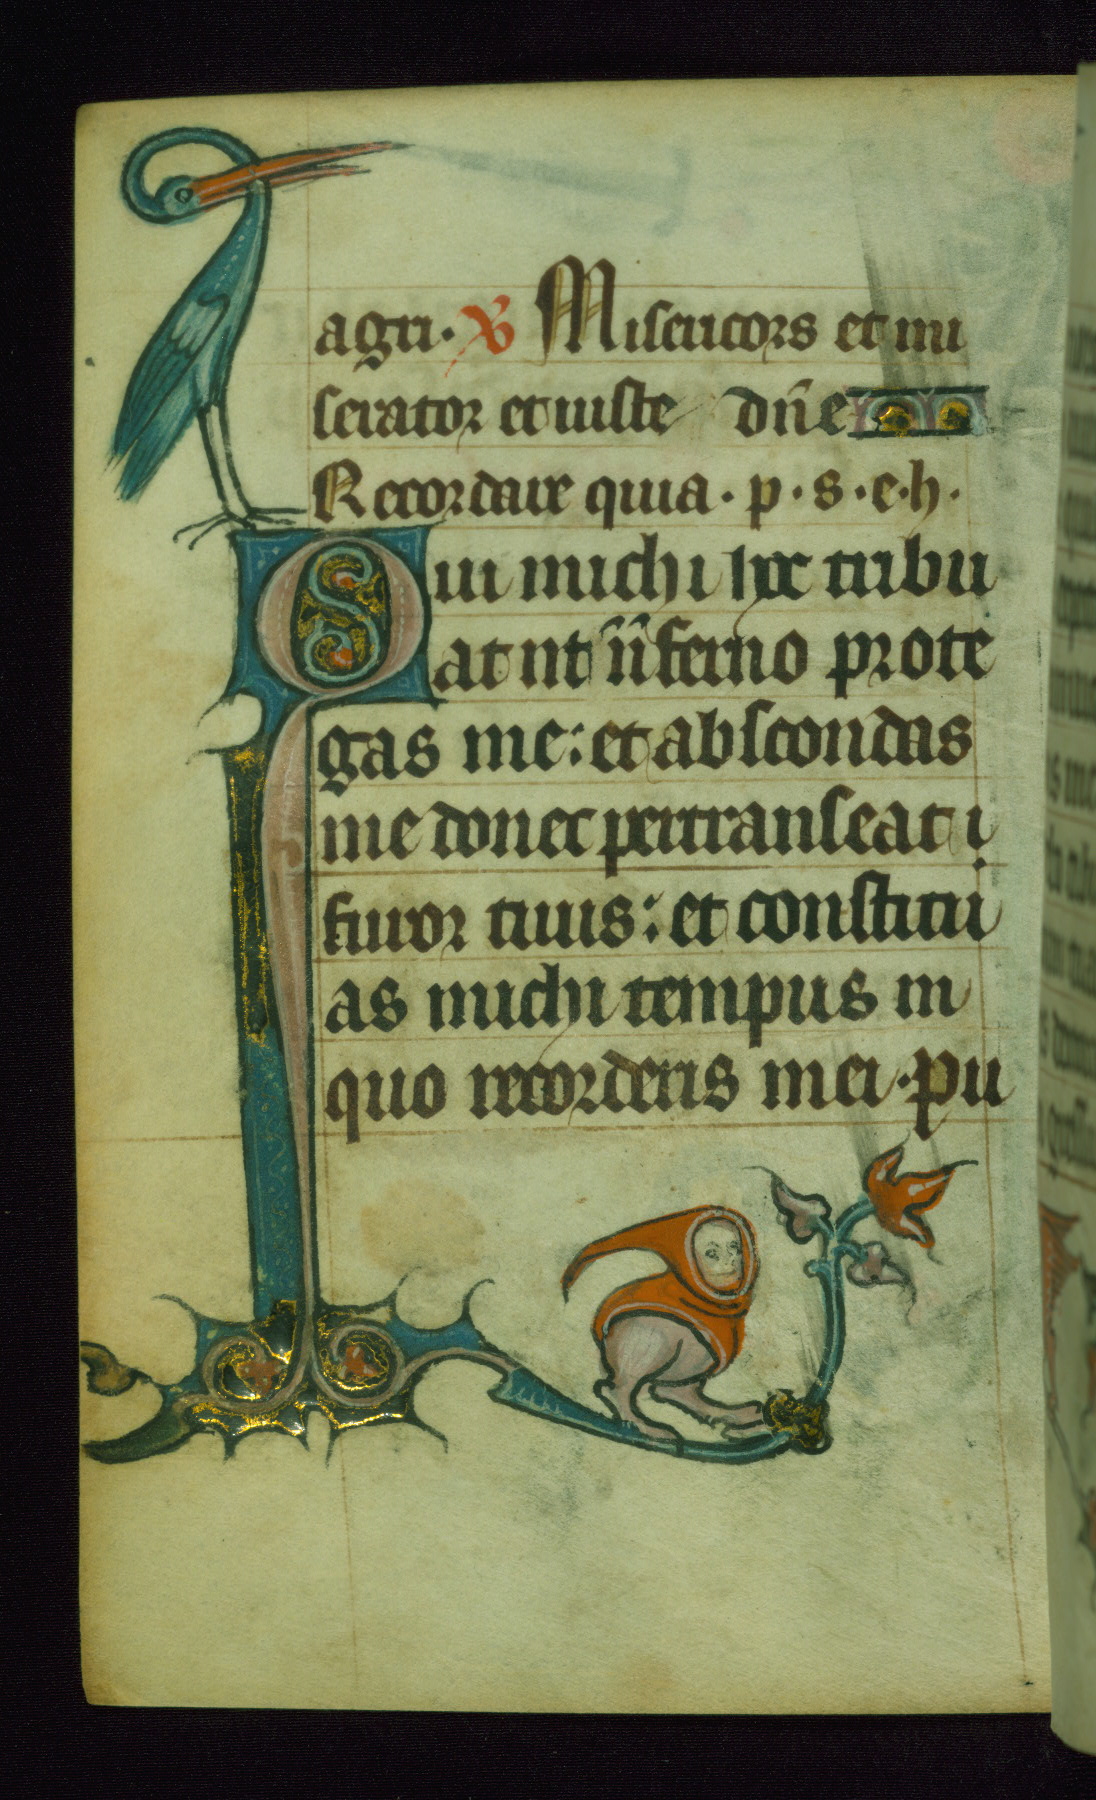 agri. ℣ Misericors et mi
serator et iuste dn̄e
Recordare quia. p. s. e. h.
Qui michi hoc tribu
at ut in īferno prote
gas me: et abscondas
me donec pertranseat i
furor tuus: et constitu
as michi tempus in
quo recorderis mei. pu